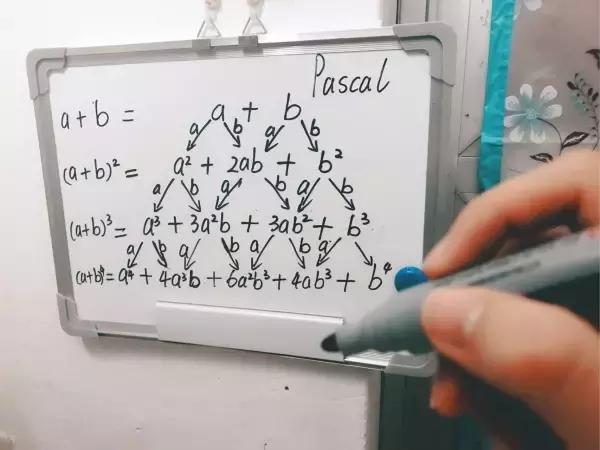 Pascal
a + b = a + b
a b a b
(a+b)² = a² + 2ab + b²
a b a b a b
(a+b)³ = a³ + 3a²b + 3ab² + b³
a b a b a b a
(a+b)⁴ = a⁴ + 4a³b + 6a²b³ + 4ab³ + b⁴